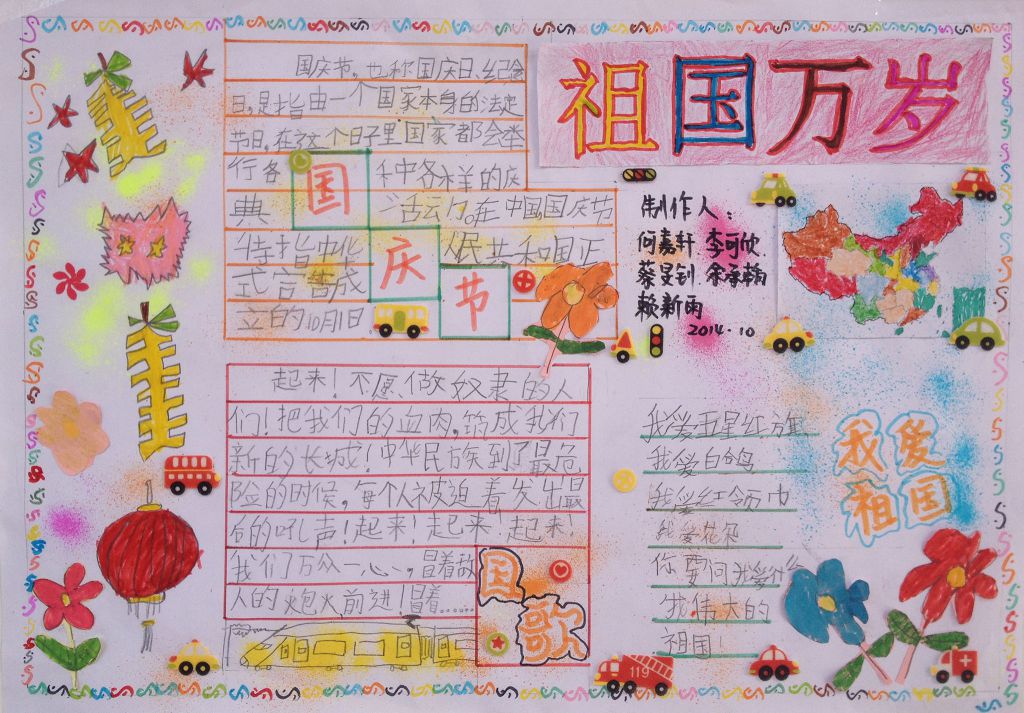 祖国万岁
国庆节，也称国庆日、纪念
日，是指由一个国家本身的法定
节日，在这个日子里国家都会举
行各种各样的庆
典活动。在中国，国庆节
特指中华人民共和国正
式宣告成
立的10月1日
国
庆
节
制作人：
何嘉轩 李可欣
赖新雨
2014.10
起来！不愿做奴隶的人
们！把我们的血肉，筑成我们
新的长城！中华民族到了最危
险的时候，每个人被迫着发出最
后的吼声！起来！起来！起来！
我们万众一心，冒着敌
人的炮火前进！冒着……
国
歌
我爱五星红旗
我爱白鸽
我爱红领巾
我爱花朵
你要问我爱什么
我伟大的
祖国
我爱
祖国
119